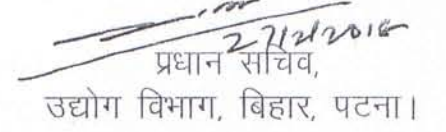 27/2/2018
प्रधान सचिव,
उद्योग विभाग, बिहार, पटना।